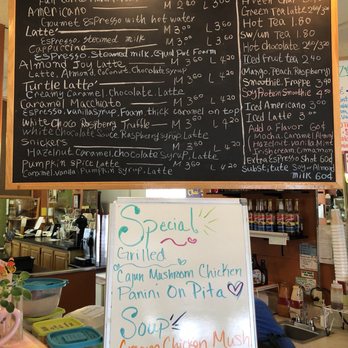 Americano M 2.60 L 3.00
Gourmet Espresso with hot water
Latte' M 3.00 L 3.60
Espresso, Steamed milk
Cappuccino M 3.00 L 3.60
Espresso Steamed milk, Equal Part Foam
Almond Joy Latte M 3.60 L 4.20
Latte, Almond, Coconut, Chocolate Syrup
Turtle Latte' M 3.60 L 4.20
Creamy Caramel, Chocolate, Latte
Caramel Macchiato M 3.60 L 4.20
Espresso, Vanilla Syrup, Foam thick Caramel on top
White Choco Raspberry Truffle M 3.60 L 4.20
White Chocolate Sauce Raspberry Syrup, Latte
Snickers M 3.60 L 4.20
Hazelnut, Caramel, Chocolate Syrup, Latte
Pumpkin Spice Latte M 3.60 L 4.20
Caramel, Vanilla, Pumpkin Syrup, Latte
Green Tea Latte
Hot Tea 1.80
Sw/un Tea 1.80
Hot Chocolate
Iced fruit tea 2.40
Mango, Peach, Raspberry
Smoothie, Frappe 3.90
Soy Protein Smoothie
Iced Americano 3.00
Iced Latte 3.00
Add a Flavor 60¢
Mocha, Caramel, Almond
Hazelnut, Vanilla, Mint
Irish cream, Cinnamon
Extra Espresso Shot 60¢
Substitute Soy or Almond
milk 60¢
Special
Grilled
Cajun Mushroom Chicken
Panini On Pita
Soup
Chicken Mush